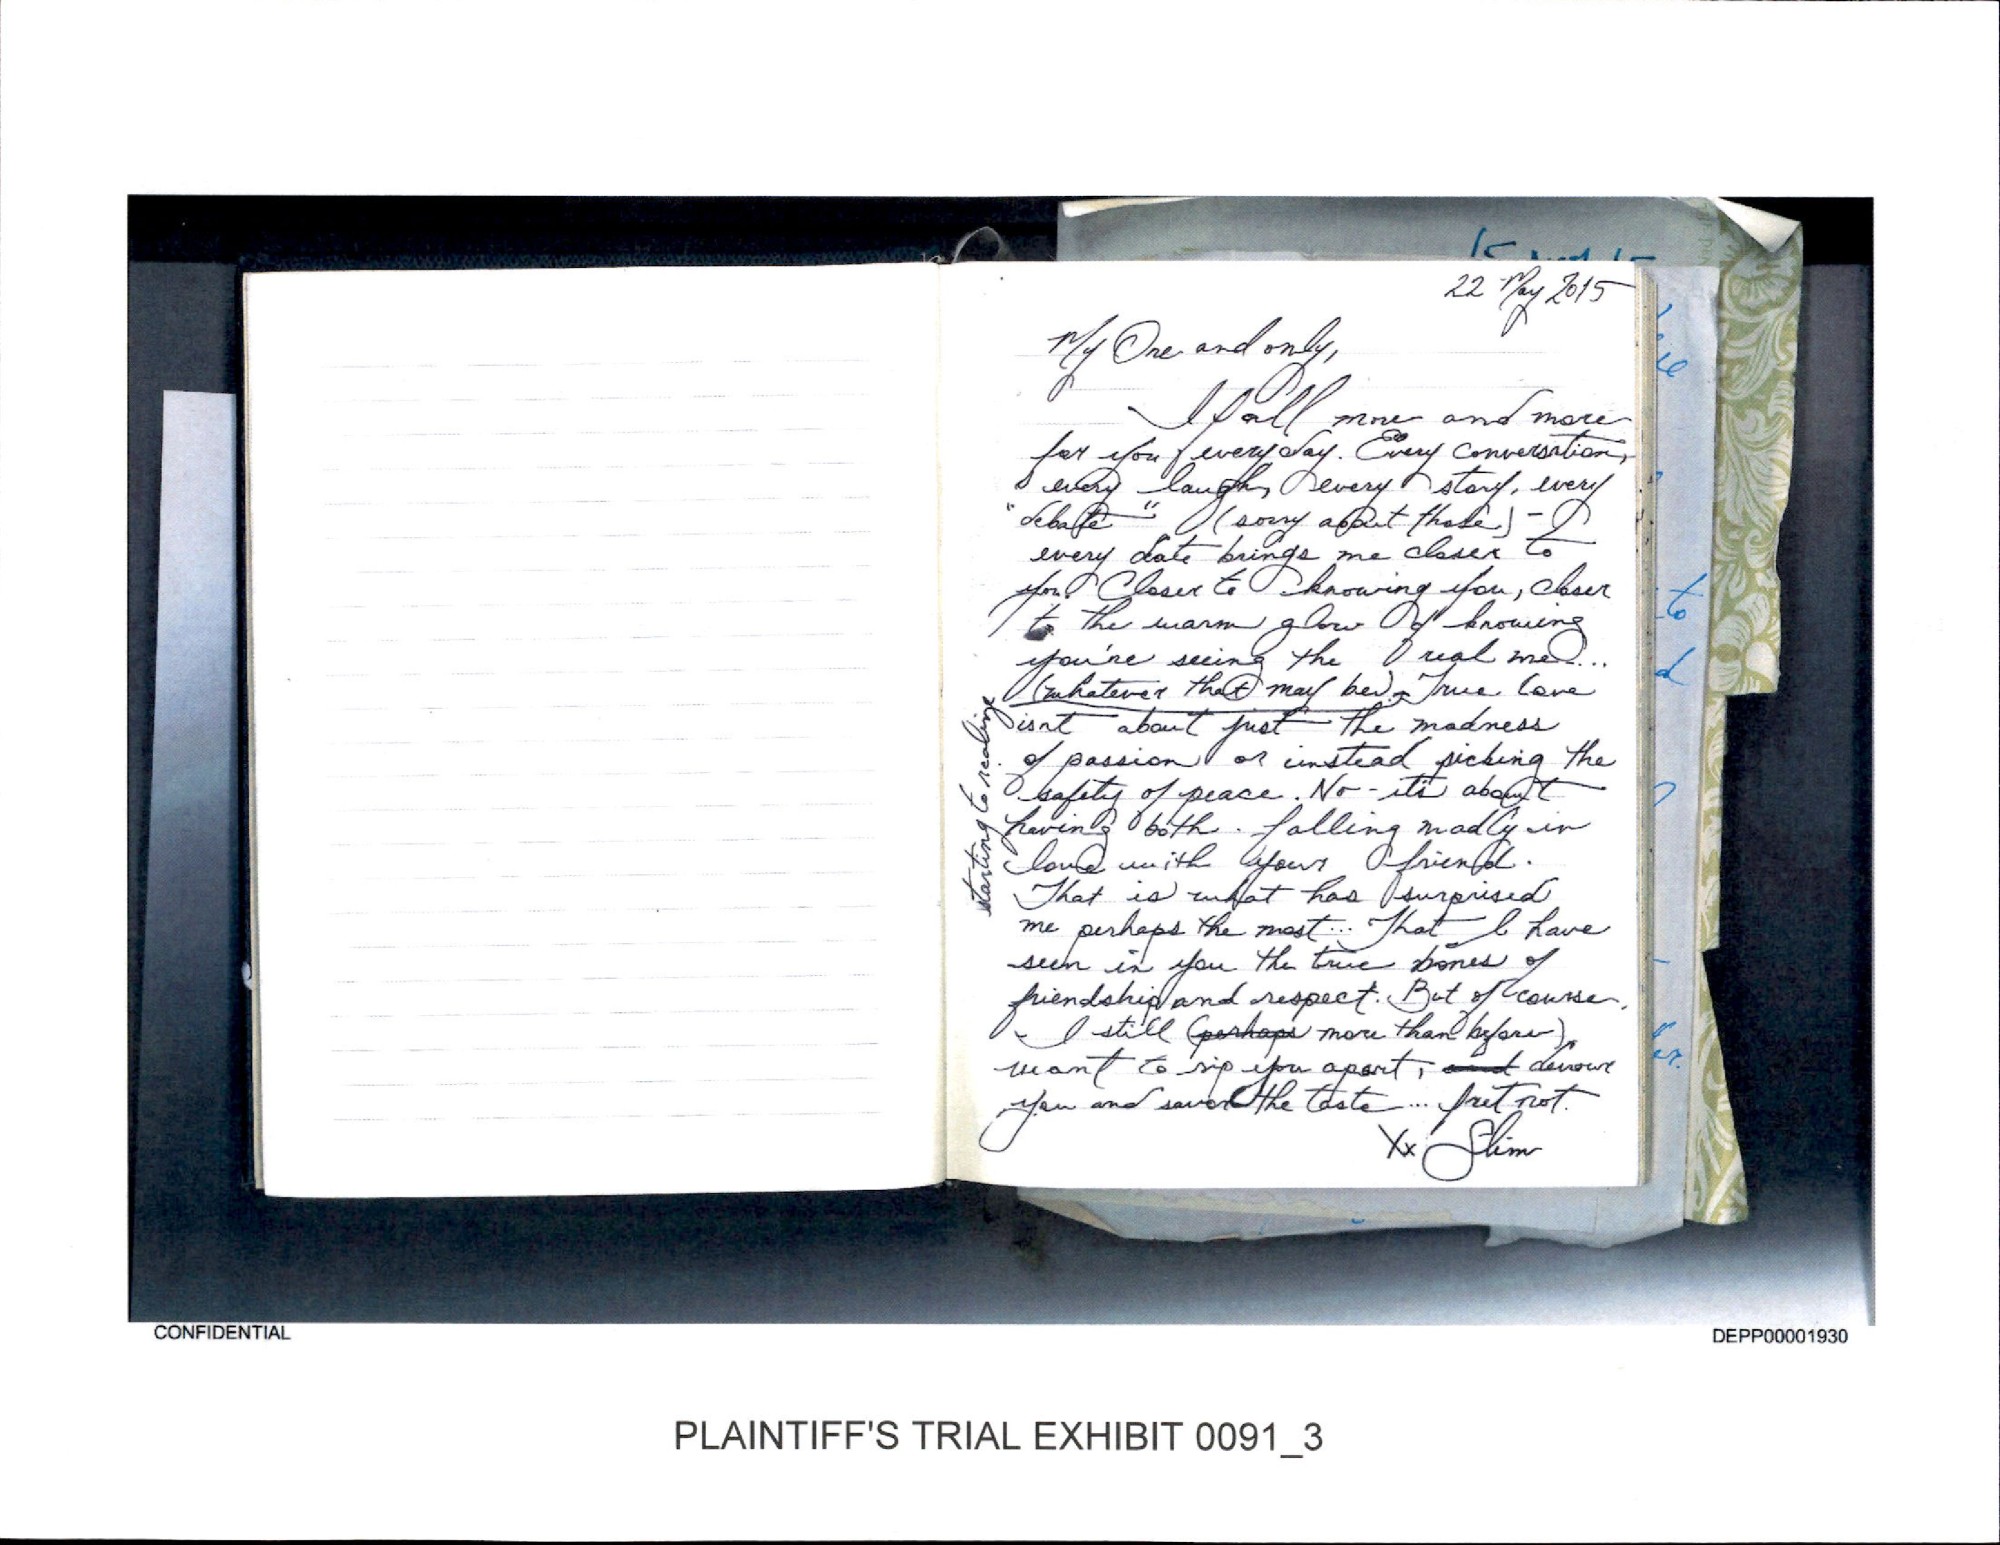 15
22 May 2015
My One and only,
I fall more and more
for you everyday. Every conversation,
every laugh, every story, every
"debate" (sorry about those) -
every date brings me closer to
you. Closer to knowing you, closer
to the warm glow of knowing
you're seeing the real me...
(whatever that may be). True love
isnt about just the madness
of passion or instead picking the
safety of peace. No - it's about
having both. falling madly in
love with your friend.
That is what has surprised
me perhaps the most... That I have
seen in you the true bones of
friendship and respect. But of course,
I still (perhaps more than before)
want to rip you apart, and devour
you and savor the taste... fret not.
Xx Slim
starting to realize
ice
to
d
er.
CONFIDENTIAL
DEPP00001930
PLAINTIFF'S TRIAL EXHIBIT 0091_3